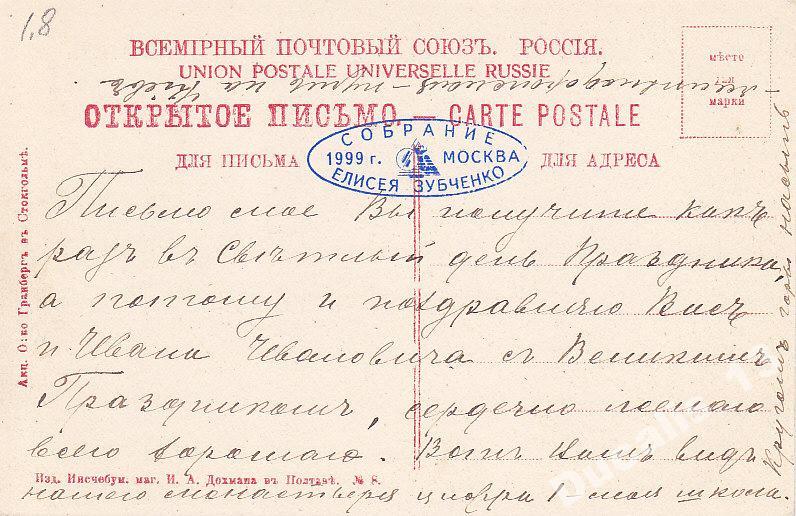 1,8
ВСЕМІРНЫЙ ПОЧТОВЫЙ СОЮЗЪ. РОССІЯ.
UNION POSTALE UNIVERSELLE RUSSIE
ОТКРЫТОЕ ПИСЬМО. — CARTE POSTALE
мѣсто
для
марки
СОБРАНІЕ
1999 г. МОСКВА
ЕЛИСЕЯ ЗУБЧЕНКО
ДЛЯ ПИСЬМА
ДЛЯ АДРЕСА
Письмо мое Вы получите какъ
разъ въ Свѣтлый день Праздника,
а потому и поздравляю Васъ
и Ивана Ивановича съ Великимъ
Праздникомъ, сердечно желаю
всего хорошаго. Вотъ Вамъ видъ
нашего монастыря цифра 1 - моя школа.
Кругомъ горы насыпь
на Кіевъ
Акц. О-во Гранбергъ въ Стокгольмѣ.
Изд. Писчебум. маг. И. А. Дохмана въ Полтавѣ. № 8.
Ducalis 19